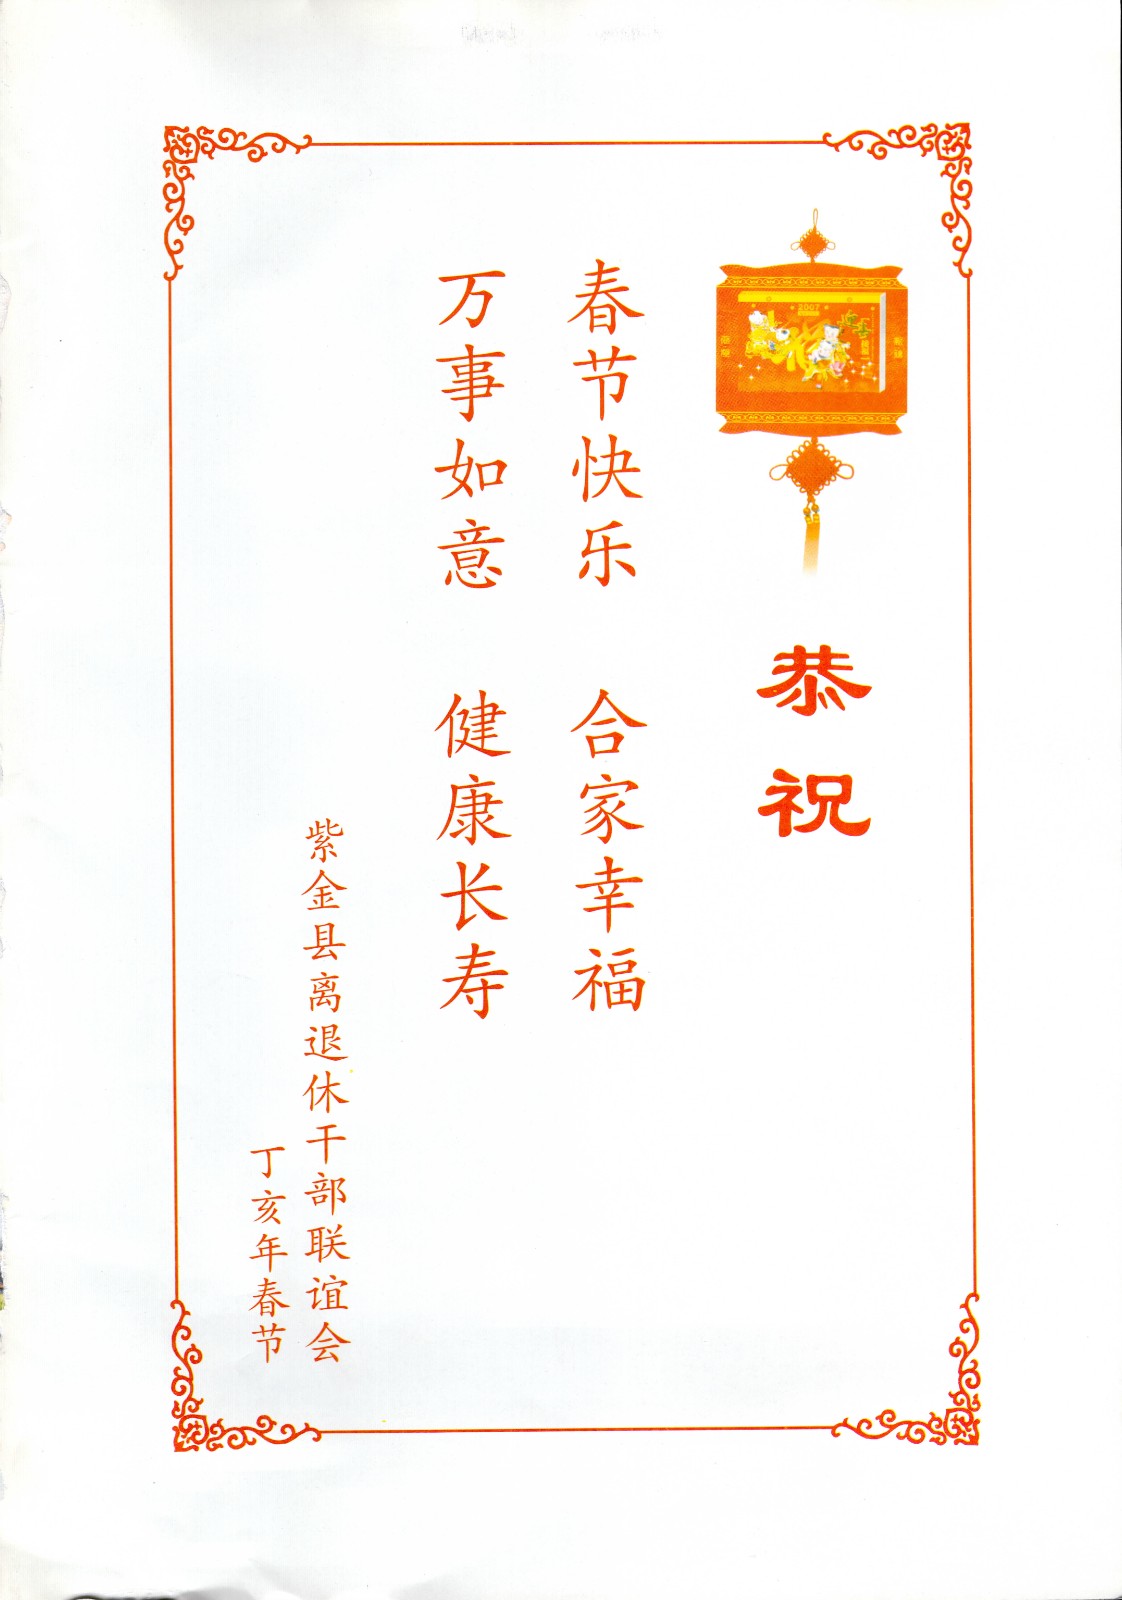 2007
恭祝
春节快乐 合家幸福
万事如意 健康长寿
紫金县离退休干部联谊会
丁亥年春节